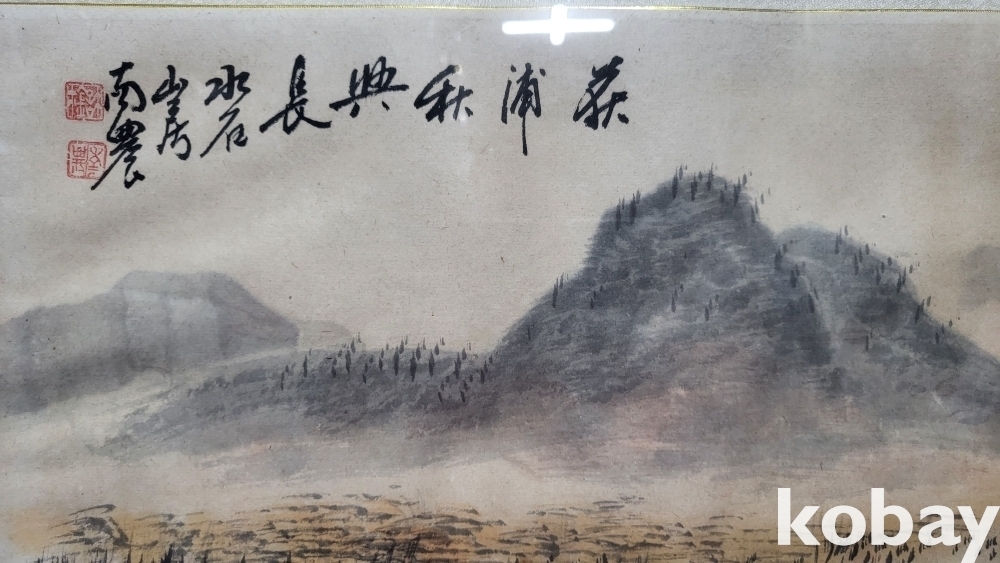 荻浦秋興長
水石山居
南農
kobay